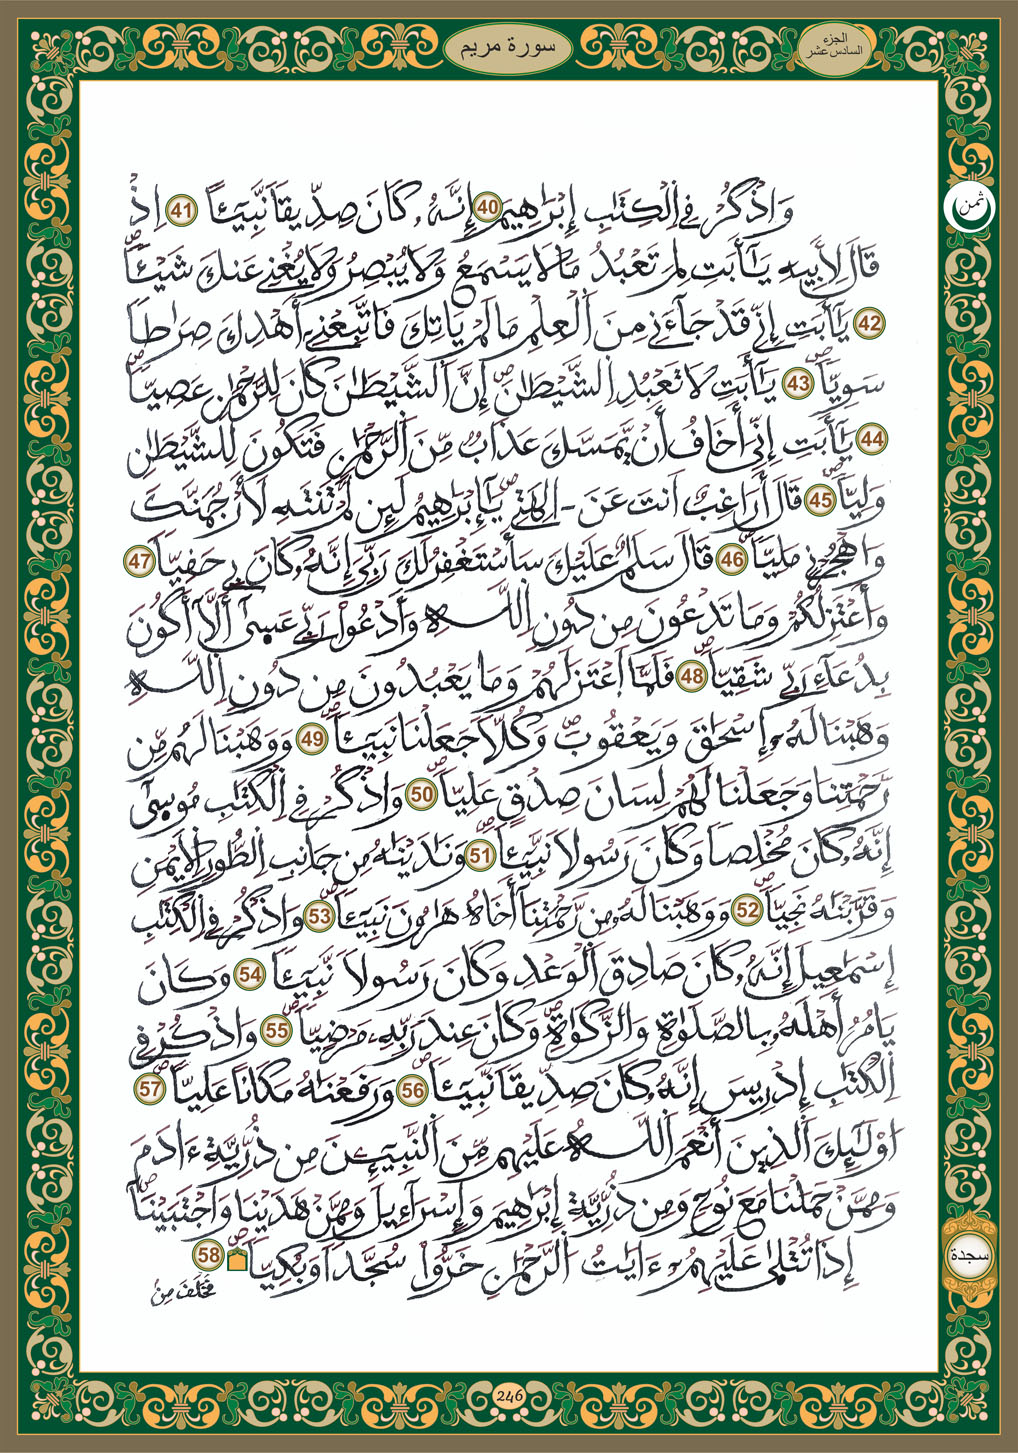 سورة مريم
الجزء
السادس عشر
ثمن
وَاذْكُرْ فِي اِ۬لْكِتَٰبِ إِبْرَٰهِيمَ 40 إِنَّهُۥ كَانَ صِدِّيقاٗ نَّبِيٓـٔاً 41 اِذْ
قَالَ لِأَبِيهِ يَٰٓأَبَتِ لِمَ تَعْبُدُ مَا لَا يَسْمَعُ وَلَا يُبْصِرُ وَلَا يُغْنِے عَنكَ شَيْـٔاٗ
42 يَٰٓأَبَتِ إِنِّے قَدْ جَآءَنِے مِنَ اَ۬لْعِلْمِ مَا لَمْ يَاتِكَ فَاتَّبِعْنِےٓ أَهْدِكَ صِرَٰطاٗ
سَوِيّاٗ 43 يَٰٓأَبَتِ لَا تَعْبُدِ اِ۬لشَّيْطَٰنَ إِنَّ اَ۬لشَّيْطَٰنَ كَانَ لِلرَّحْمَٰنِ عَصِيّاٗ
44 يَٰٓأَبَتِ إِنِّيَ أَخَافُ أَنْ يَّمَسَّكَ عَذَابٞ مِّنَ اَ۬لرَّحْمَٰنِ فَتَكُونَ لِلشَّيْطَٰنِ
وَلِيّاٗ 45 قَالَ أَرَاغِبٌ اَنتَ عَنَ اٰلِهَتِے يَٰٓإِبْرَٰهِيمُ لَئِن لَّمْ تَنتَهِ لَأَرْجُمَنَّكَ
وَاهْجُرْنِے مَلِيّاٗ 46 قَالَ سَلَٰمٌ عَلَيْكَ سَأَسْتَغْفِرُ لَكَ رَبِّيَ إِنَّهُۥ كَانَ بِے حَفِيّاٗ 47
وَأَعْتَزِلُكُمْ وَمَا تَدْعُونَ مِن دُونِ اِ۬للَّهِ وَأَدْعُواْ رَبِّے عَسَىٰٓ أَلَّآ أَكُونَ
بِدُعَآءِ رَبِّے شَقِيّاٗ 48 فَلَمَّا اَ۪عْتَزَلَهُمْ وَمَا يَعْبُدُونَ مِن دُونِ اِ۬للَّهِ
وَهَبْنَا لَهُۥٓ إِسْحَٰقَ وَيَعْقُوبَ وَكُلّاٗ جَعَلْنَا نَبِيٓـٔاٗ 49 وَوَهَبْنَا لَهُم مِّن
رَّحْمَتِنَا وَجَعَلْنَا لَهُمْ لِسَانَ صِدْقٍ عَلِيّاٗ 50 وَاذْكُرْ فِي اِ۬لْكِتَٰبِ مُوسَىٰٓ
إِنَّهُۥ كَانَ مُخْلِصاٗ وَكَانَ رَسُولاٗ نَّبِيٓـٔاٗ 51 وَنَٰدَيْنَٰهُ مِن جَانِبِ اِ۬لطُّورِ اِ۬لَايْمَنِ
وَقَرَّبْنَٰهُ نَجِيّاٗ 52 وَوَهَبْنَا لَهُۥ مِن رَّحْمَتِنَآ أَخَاهُ هَٰرُونَ نَبِيٓـٔاٗ 53 وَاذْكُرْ فِي اِ۬لْكِتَٰبِ
إِسْمَٰعِيلَ إِنَّهُۥ كَانَ صَادِقَ اَ۬لْوَعْدِ وَكَانَ رَسُولاٗ نَّبِيٓـٔاٗ 54 وَكَانَ
يَامُرُ أَهْلَهُۥ بِالصَّلَوٰةِ وَالزَّكَوٰةِ وَكَانَ عِندَ رَبِّهِۦ مَرْضِيّاٗ 55 وَاذْكُرْ فِي
اِ۬لْكِتَٰبِ إِدْرِيسَ إِنَّهُۥ كَانَ صِدِّيقاٗ نَّبِيٓـٔاٗ 56 وَرَفَعْنَٰهُ مَكَاناً عَلِيّاً 57
اُوْلَٰٓئِكَ اَ۬لذِينَ أَنْعَمَ اَ۬للَّهُ عَلَيْهِم مِّنَ اَ۬لنَّبِيٓـِٕۧنَ مِن ذُرِّيَّةِ ءَادَمَ
وَمِمَّنْ حَمَلْنَا مَعَ نُوحٖ وَمِن ذُرِّيَّةِ إِبْرَٰهِيمَ وَإِسْرَآءِيلَ وَمِمَّنْ هَدَيْنَا وَاجْتَبَيْنَآ
إِذَا تُتْلَىٰ عَلَيْهِمُۥٓ ءَايَٰتُ اُ۬لرَّحْمَٰنِ خَرُّواْ سُجَّداٗ وَبُكِيّاٗ 58
سجدة
فَخَلَفَ مِنۢ
246